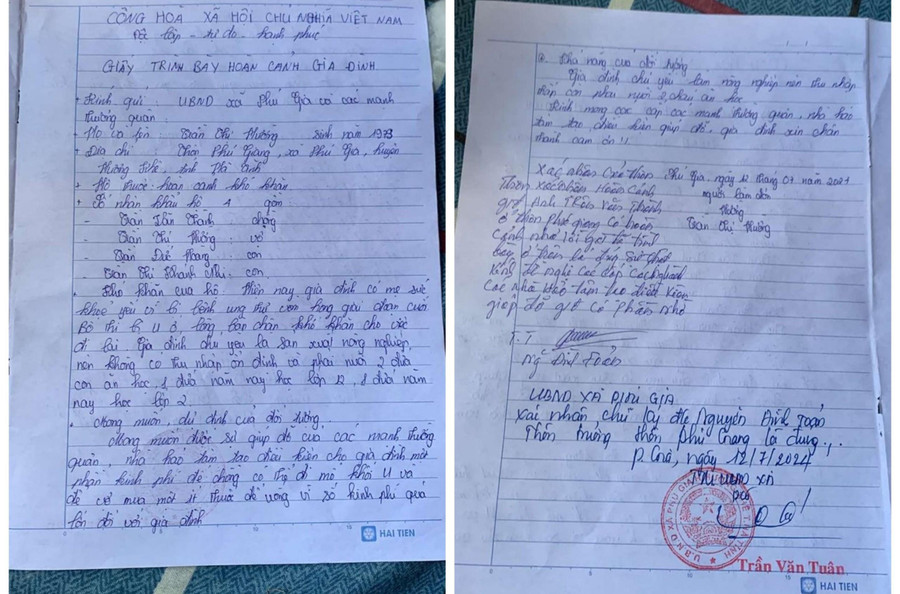 CÔNG HOÀ XÃ HỘI CHỦ NGHĨA VIỆT NAM
Độc lập - tự do - hạnh phúc
GIẤY TRÌNH BÀY HOÀN CẢNH GIA ĐÌNH
+ Kính gửi: UBND xã Phú Gia và các mạnh
thường quân.
+ Họ và tên: Trần Thị Thường sinh năm 1973
+ Địa chỉ: Thôn Phú Giang, xã Phú Gia, huyện
Hương Khê, tỉnh Hà Tĩnh
+ Hộ thuộc: hoàn cảnh khó khăn
+ Số nhân khẩu hộ 4 gồm
- Trần Văn Thành: chồng
- Trần Thị Thường: vợ
- Trần Đức: con
- Trần Thị Khánh: con.
- Khó khăn của hộ: Hiện nay gia đình có mẹ sức
khoẻ yếu có bị bệnh ung thư vòm họng giai đoạn cuối
Bố thì bị U ở lòng bàn chân khó khăn cho việc
đi lại. Gia đình chủ yếu là sản xuất nông nghiệp,
nên không có thu nhập ổn định và phải nuôi 2 đứa
con ăn học, 1 đứa năm nay học lớp 12, 1 đứa năm
nay học lớp 2
• Mong muốn, dự định của đối tượng.
Mong muốn được sự giúp đỡ của các mạnh thường
quân, nhà hảo tâm tạo điều kiện cho gia đình một
phần kinh phí để chồng có thể đi mổ khối U và
để vợ mua một ít thuốc để uống vì số kinh phí quá
lớn đối với gia đình
HAI TIEN
Khả năng của đối tượng
Gia đình chủ yếu làm nông nghiệp nên thu nhập
thấp còn phải nuôi 2 cháu ăn học
Kính mong các cấp các mạnh thường quân, nhà hảo
tâm tạo điều kiện giúp đỡ, gia đình xin chân
thành cảm ơn!!
Phú Gia, ngày 12 tháng 07 năm 2024
Xác nhận của thôn người làm đơn
Thôn xác nhận Hoàn Cảnh Thường
g/đ Anh Trần Văn Thành Trần Thị Thường
ở thôn Phú giang Có hoàn
Cảnh như lời g/đ đã trình
bày ở trên là đúng sự thật
Kính đề nghị các cấp các ngành
Các nhà Hảo tâm tạo điều kiện
giúp đỡ g/đ có phần nhỏ
T.T
Ng Đình Toản
UBND XÃ PHÚ GIA
Xác nhận chữ ký Nguyễn Đình Toản
Thôn trưởng thôn Phú Giang là đúng.
P. Gia, ngày 12/7/2024
TM UBND XÃ
PCT
Trần Văn Tuân
HAI TIEN